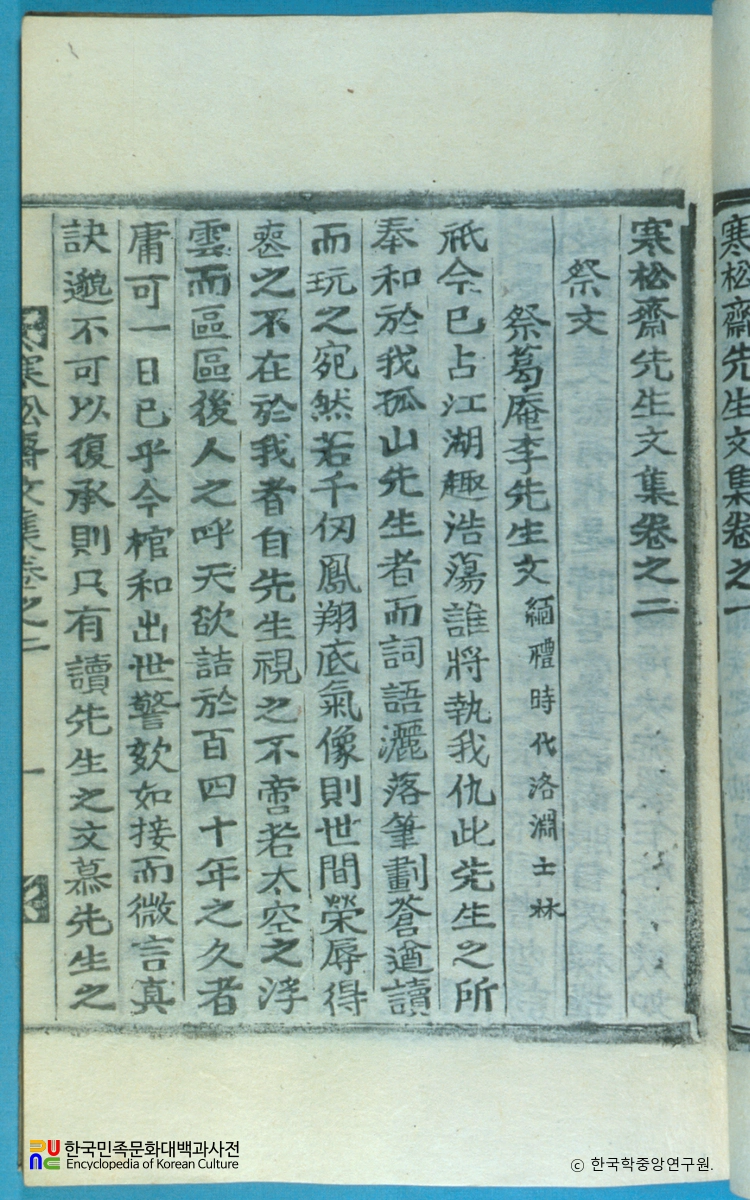 寒松齋先生文集卷之一
寒松齋先生文集卷之二
祭文
祭葛庵李先生文 緬禮時代洛淵士林
祇今已占江湖趣浩蕩誰將執我仇此先生之所
奉和於我孤山先生者而詞語灑落筆劃蒼遒讀
而玩之宛然若千仞鳳翔底氣像則世間榮辱得
喪之不在於我者自先生視之不啻若太空之浮
雲而區區後人之呼天欲詰於百四十年之久者
庸可一日已乎今棺和出世警欬如接而微言眞
訣邈不可以復承則只有讀先生之文慕先生之
寒松齋文集卷之二
一
한국민족문화대백과사전
Encyclopedia of Korean Culture
ⓒ 한국학중앙연구원.